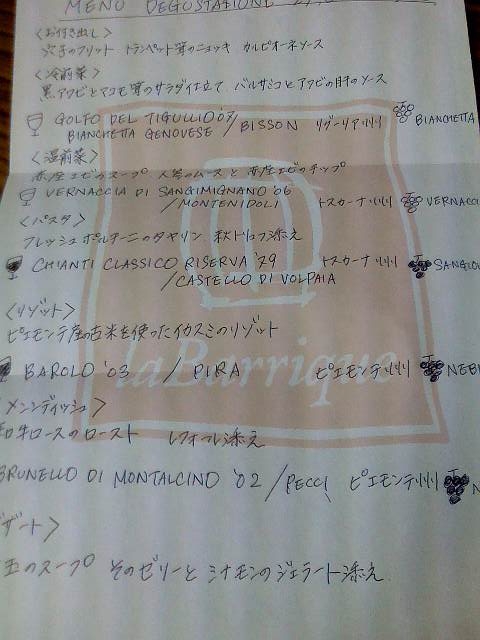 MENU DEGUSTAZIONE
〈お付き出し〉
穴子のフリット トランペット茸のニョッキ カルピオーネソース
〈冷前菜〉
黒アワビとマコモ茸のサラダ仕立て バルサミコとアワビの肝のソース
GOLFO DEL TIGULLIO '07 / BISSON リグーリア州 BIANCHETTA
BIANCHETTA GENOVESE
〈温前菜〉
赤座エビのスープ 人参のムースと赤座エビのチップ
VERNACCIA DI SANGIMIGNANO '06 / MONTENIDOLI トスカーナ州 VERNACCI
〈パスタ〉
フレッシュポルチーニのタヤリン 秋トリュフ添え
CHIANTI CLASSICO RISERVA '79 / CASTELLO DI VOLPAIA トスカーナ州 SANGIOV
〈リゾット〉
ピエモンテ産の古米を使ったイカスミのリゾット
BAROLO '03 / PIRA ピエモンテ州 NEBB
laBarrique
メンディッシュ〉
和牛ロースのロースト レフォール添え
BRUNELLO DI MONTALCINO '02 / PECCI ピエモンテ州
ザート〉
のスープ そのゼリーと シナモンのジェラート添え